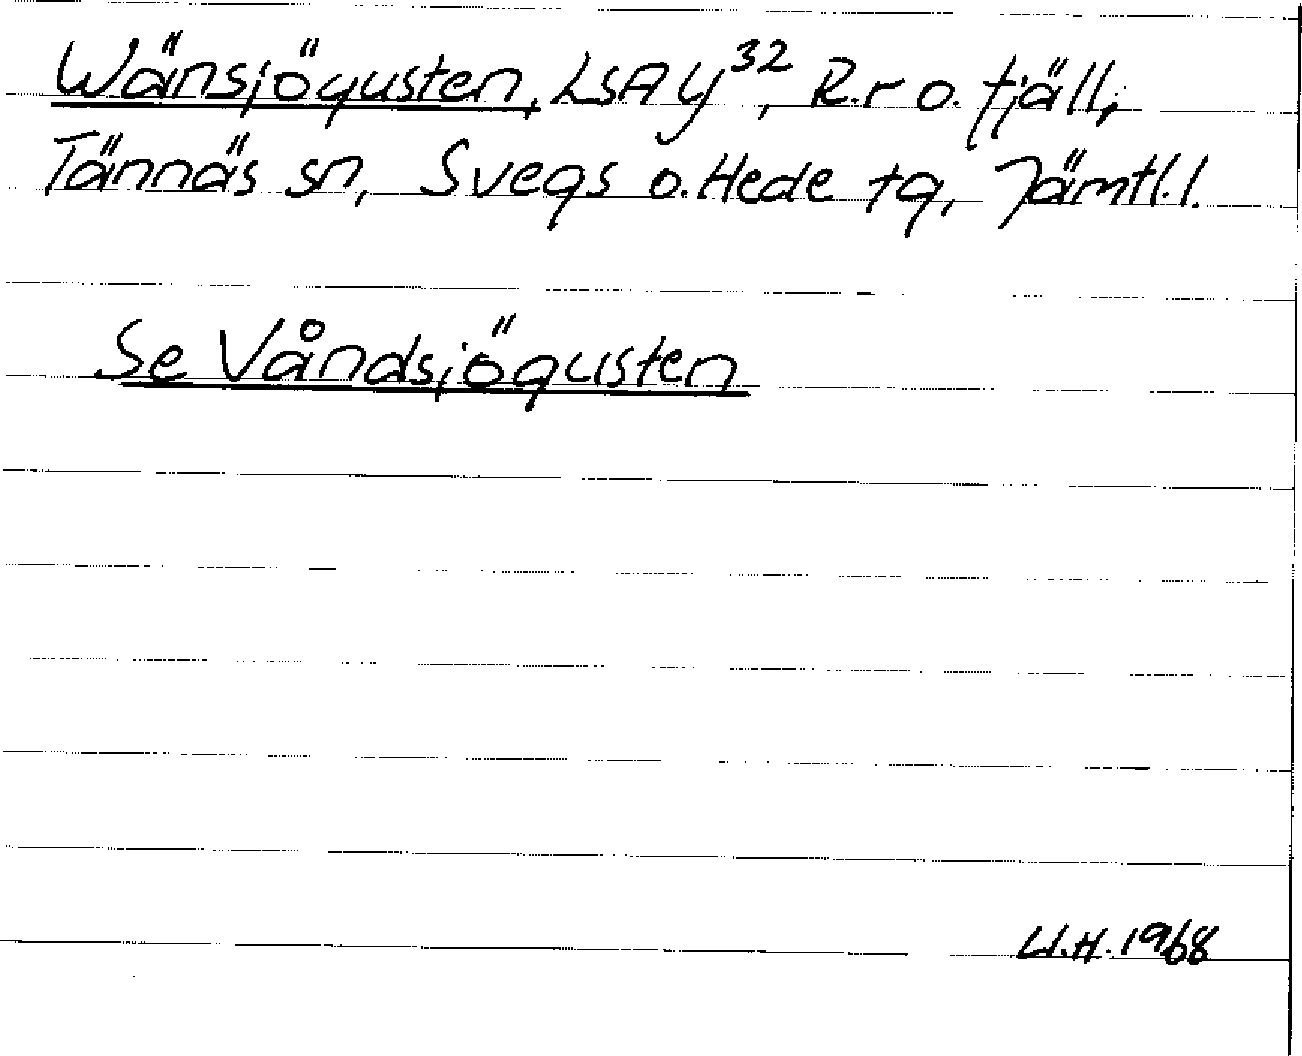 Wänsjögusten, LSA Y³², R.r o. fjäll,
Tännäs sn, Svegs o. Hede tg, Jämtl. l.
Se Våndsjögusten
U.H. 1968